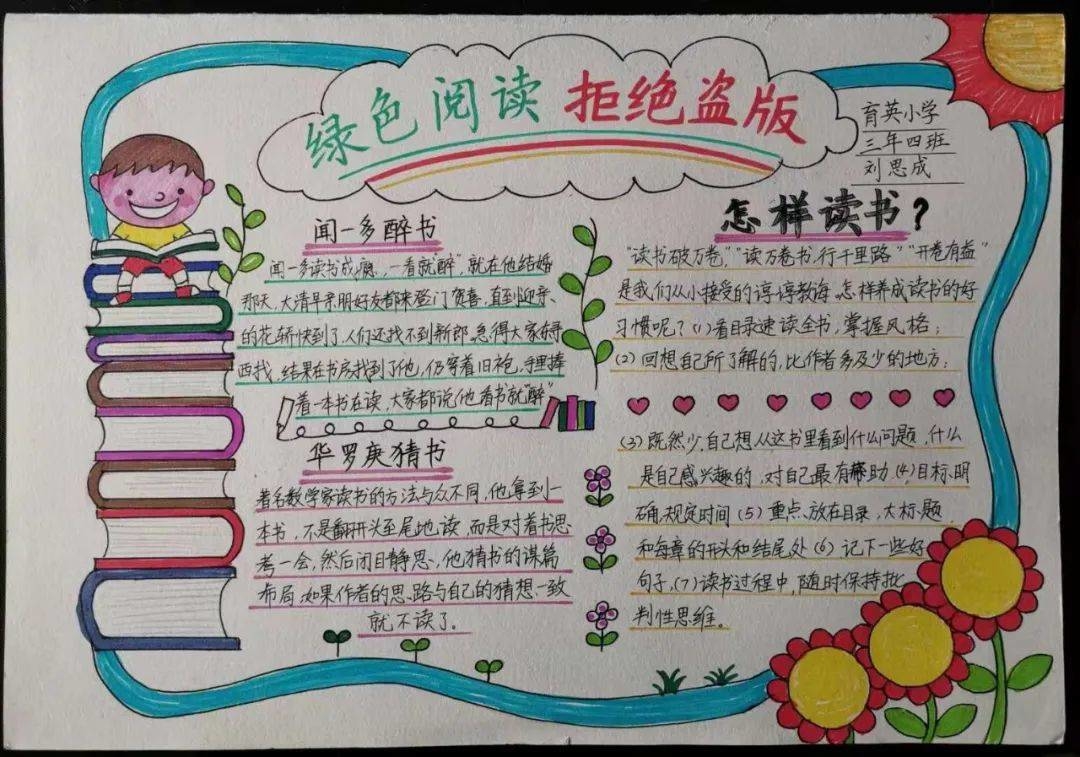 绿色阅读 拒绝盗版
育英小学
三年四班
刘思成
闻一多醉书
闻一多读书成瘾，一看就"醉"，就在他结婚
那天，大清早亲朋好友都来登门贺喜，直到迎亲、
的花轿快到了，人们还找不到新郎。急得大家东寻
西找，结果在书房找到了他，仍穿着旧袍，手里捧
着一本书在读，大家都说他看书就"醉"
华罗庚猜书
著名数学家读书的方法与众不同，他拿到一
本书，不是翻开头至尾地读，而是对着书思
考一会，然后闭目静思，他猜书的谋篇
布局，如果作者的思路与自己的猜想一致
就不读了。
怎样读书？
"读书破万卷，""读万卷书，行千里路""开卷有益"
是我们从小接受的谆谆教诲。怎样养成读书的好
习惯呢？(1)看目录速读全书，掌握风格；
(2)回想自己所了解的，比作者多及少的地方；
(3)既然少，自己想从这书里看到什么问题，什么
是自己感兴趣的，对自己最有帮助(4)目标明
确，规定时间(5)重点放在目录，大标题
和每章的开头和结尾处(6)记下一些好
句子，(7)读书过程中，随时保持批
判性思维。